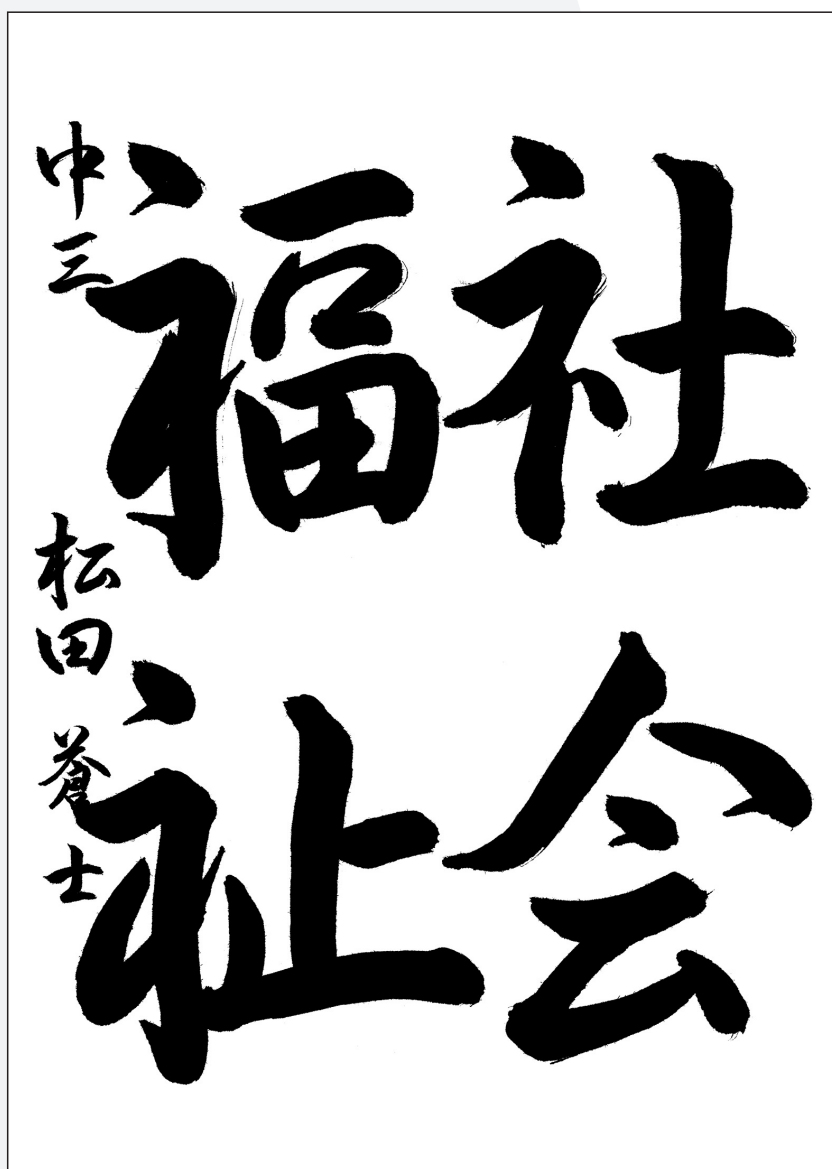 社会
福祉
中三 松田蒼士